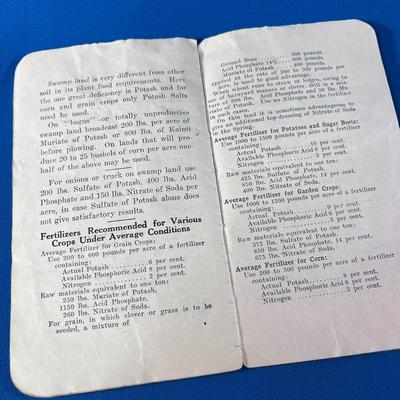 Swamp land is very different from other
soil in its plant food requirements. Here
the one great deficiency is Potash and for
corn and grain crops only Potash Salts
need be used.
On "bogus" or totally unproductive
swamp land broadcast 200 lbs. per acre of
Muriate of Potash or 800 lbs. of Kainit
before plowing. On lands that will pro-
duce 20 to 25 bushels of corn per acre one-
half of the above may be used.
For onions or truck on swamp land use
200 lbs. Sulfate of Potash, 400 lbs. Acid
Phosphate and 150 lbs. Nitrate of Soda per
acre, in case Sulfate of Potash alone does
not give satisfactory results.
Fertilizers Recommended for Various
Crops Under Average Conditions
Average Fertilizer for Grain Crops:
Use 200 to 600 pounds per acre of a fertilizer
containing:
Actual Potash ............ 6 per cent.
Available Phosphoric Acid 8 per cent.
Nitrogen ................. 2 per cent.
Raw materials equivalent to one ton:
250 lbs. Muriate of Potash.
1150 lbs. Acid Phosphate.
260 lbs. Nitrate of Soda.
For grain, in which clover or grass is to be
seeded, a mixture of
Ground Bone ........ 800 pounds.
Acid Phosphate 14% .... 800 pounds.
Muriate of Potash ..... 400 pounds.
applied at the rate of 200 to 300 pounds per
acre, is used to good advantage.
When wheat runs to straw or lodges, owing to
use of barnyard manure or clover, drill in a mix-
ture of 200 lbs. Acid Phosphate and 50 lbs. Mu-
riate of Potash. Use no Nitrogen in the fertilizer
On thin land it is sometimes advantageous to
give an additional top-dressing of Nitrate of Soda
in the Spring.
Average Fertilizer for Potatoes and Sugar Beets:
Use 1000 to 1500 pounds per acre of a fertilizer
containing:
Actual Potash ......... 10 per cent.
Available Phosphoric Acid 6 per cent.
Nitrogen ........... per cent.
Raw materials equivalent to one ton:
425 lbs. Sulfate of Potash.
850 lbs. Acid Phosphate, 14 per cent.
lbs. Nitrate of Soda.
Average Fertilizer for Garden Crops:
Use 1000 to 1200 pounds per acre of a fertilizer
containing:
Actual Potash ........ 9 per cent.
Available Phosphoric Acid 6 per cent.
Nitrogen ............ per cent.
Raw materials equivalent to one ton:
375 lbs. Sulfate of Potash.
850 lbs. Acid Phosphate, 14 per cent.
675 lbs. Nitrate of Soda.
Average Fertilizer for Corn:
Use 200 to 500 pounds per acre of a fertilizer
containing:
Actual Potash ........... 8 per cent.
Available Phosphoric Acid 6 per cent.
Nitrogen ................ 2 per cent.